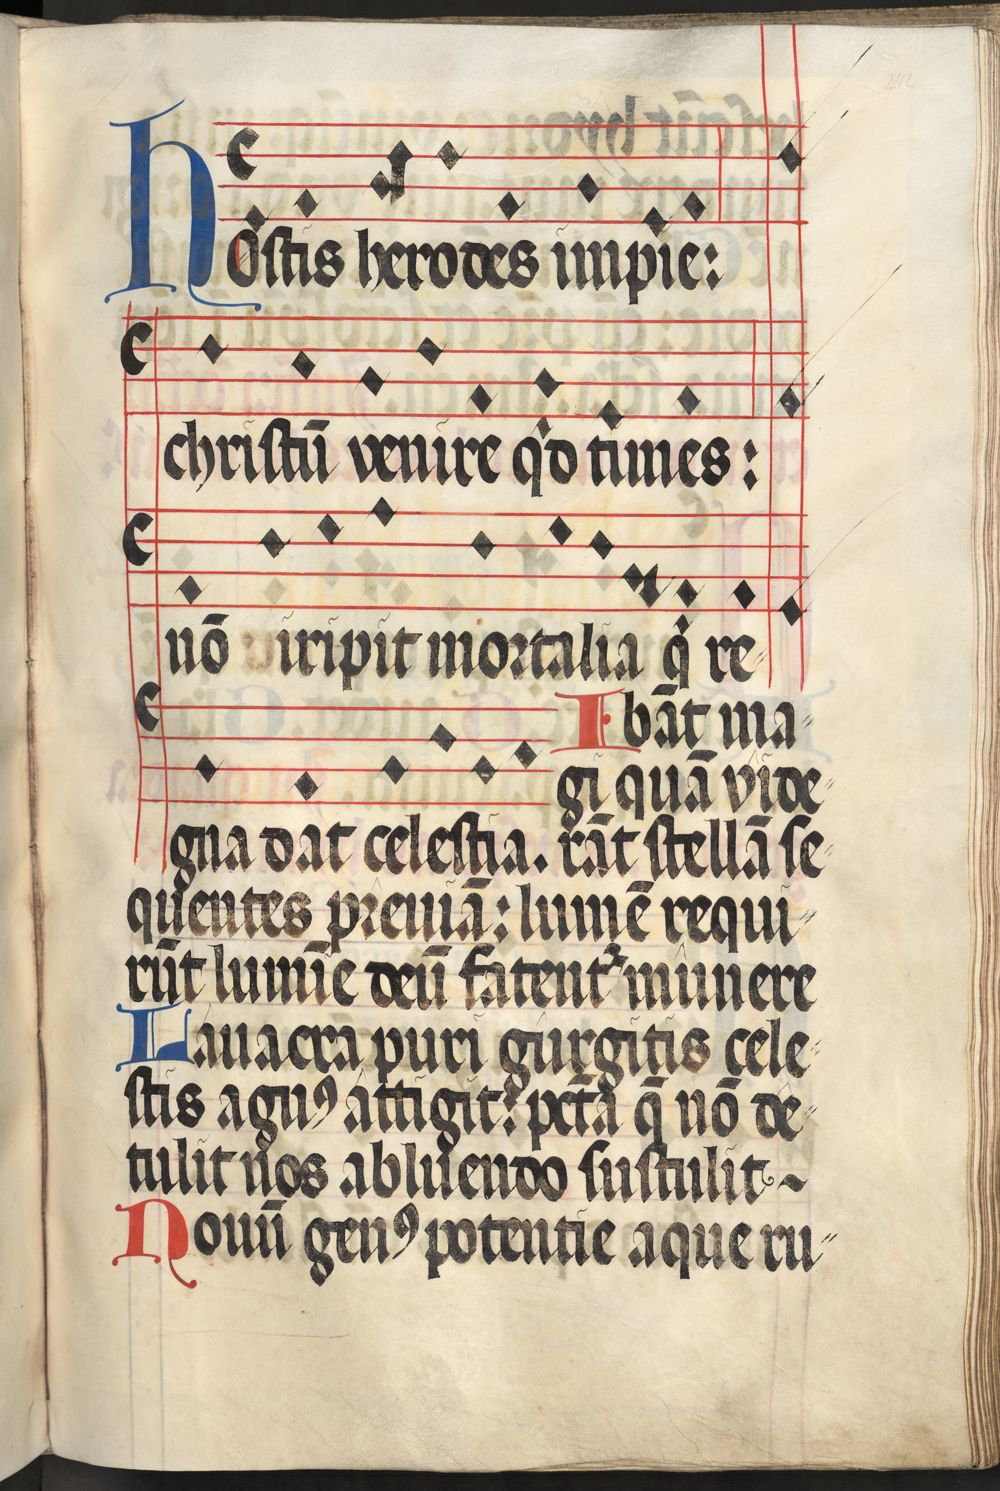 Hostis herodes impie:
christū venire qd times:
nō iripit mortalia q re=
Ibāt ma=
gi quā vide=
gna dat celestia. rāt stellā se=
quentes preuiā: lumē requi=
rūt lumīe deū fatent᷑ munere
Lauacra puri gurgitis cele=
stis agnꝰ attigit: pctā q̄ nō de=
tulit nos abluendo sustulit~
Nouū genꝰ potentie aque ru=